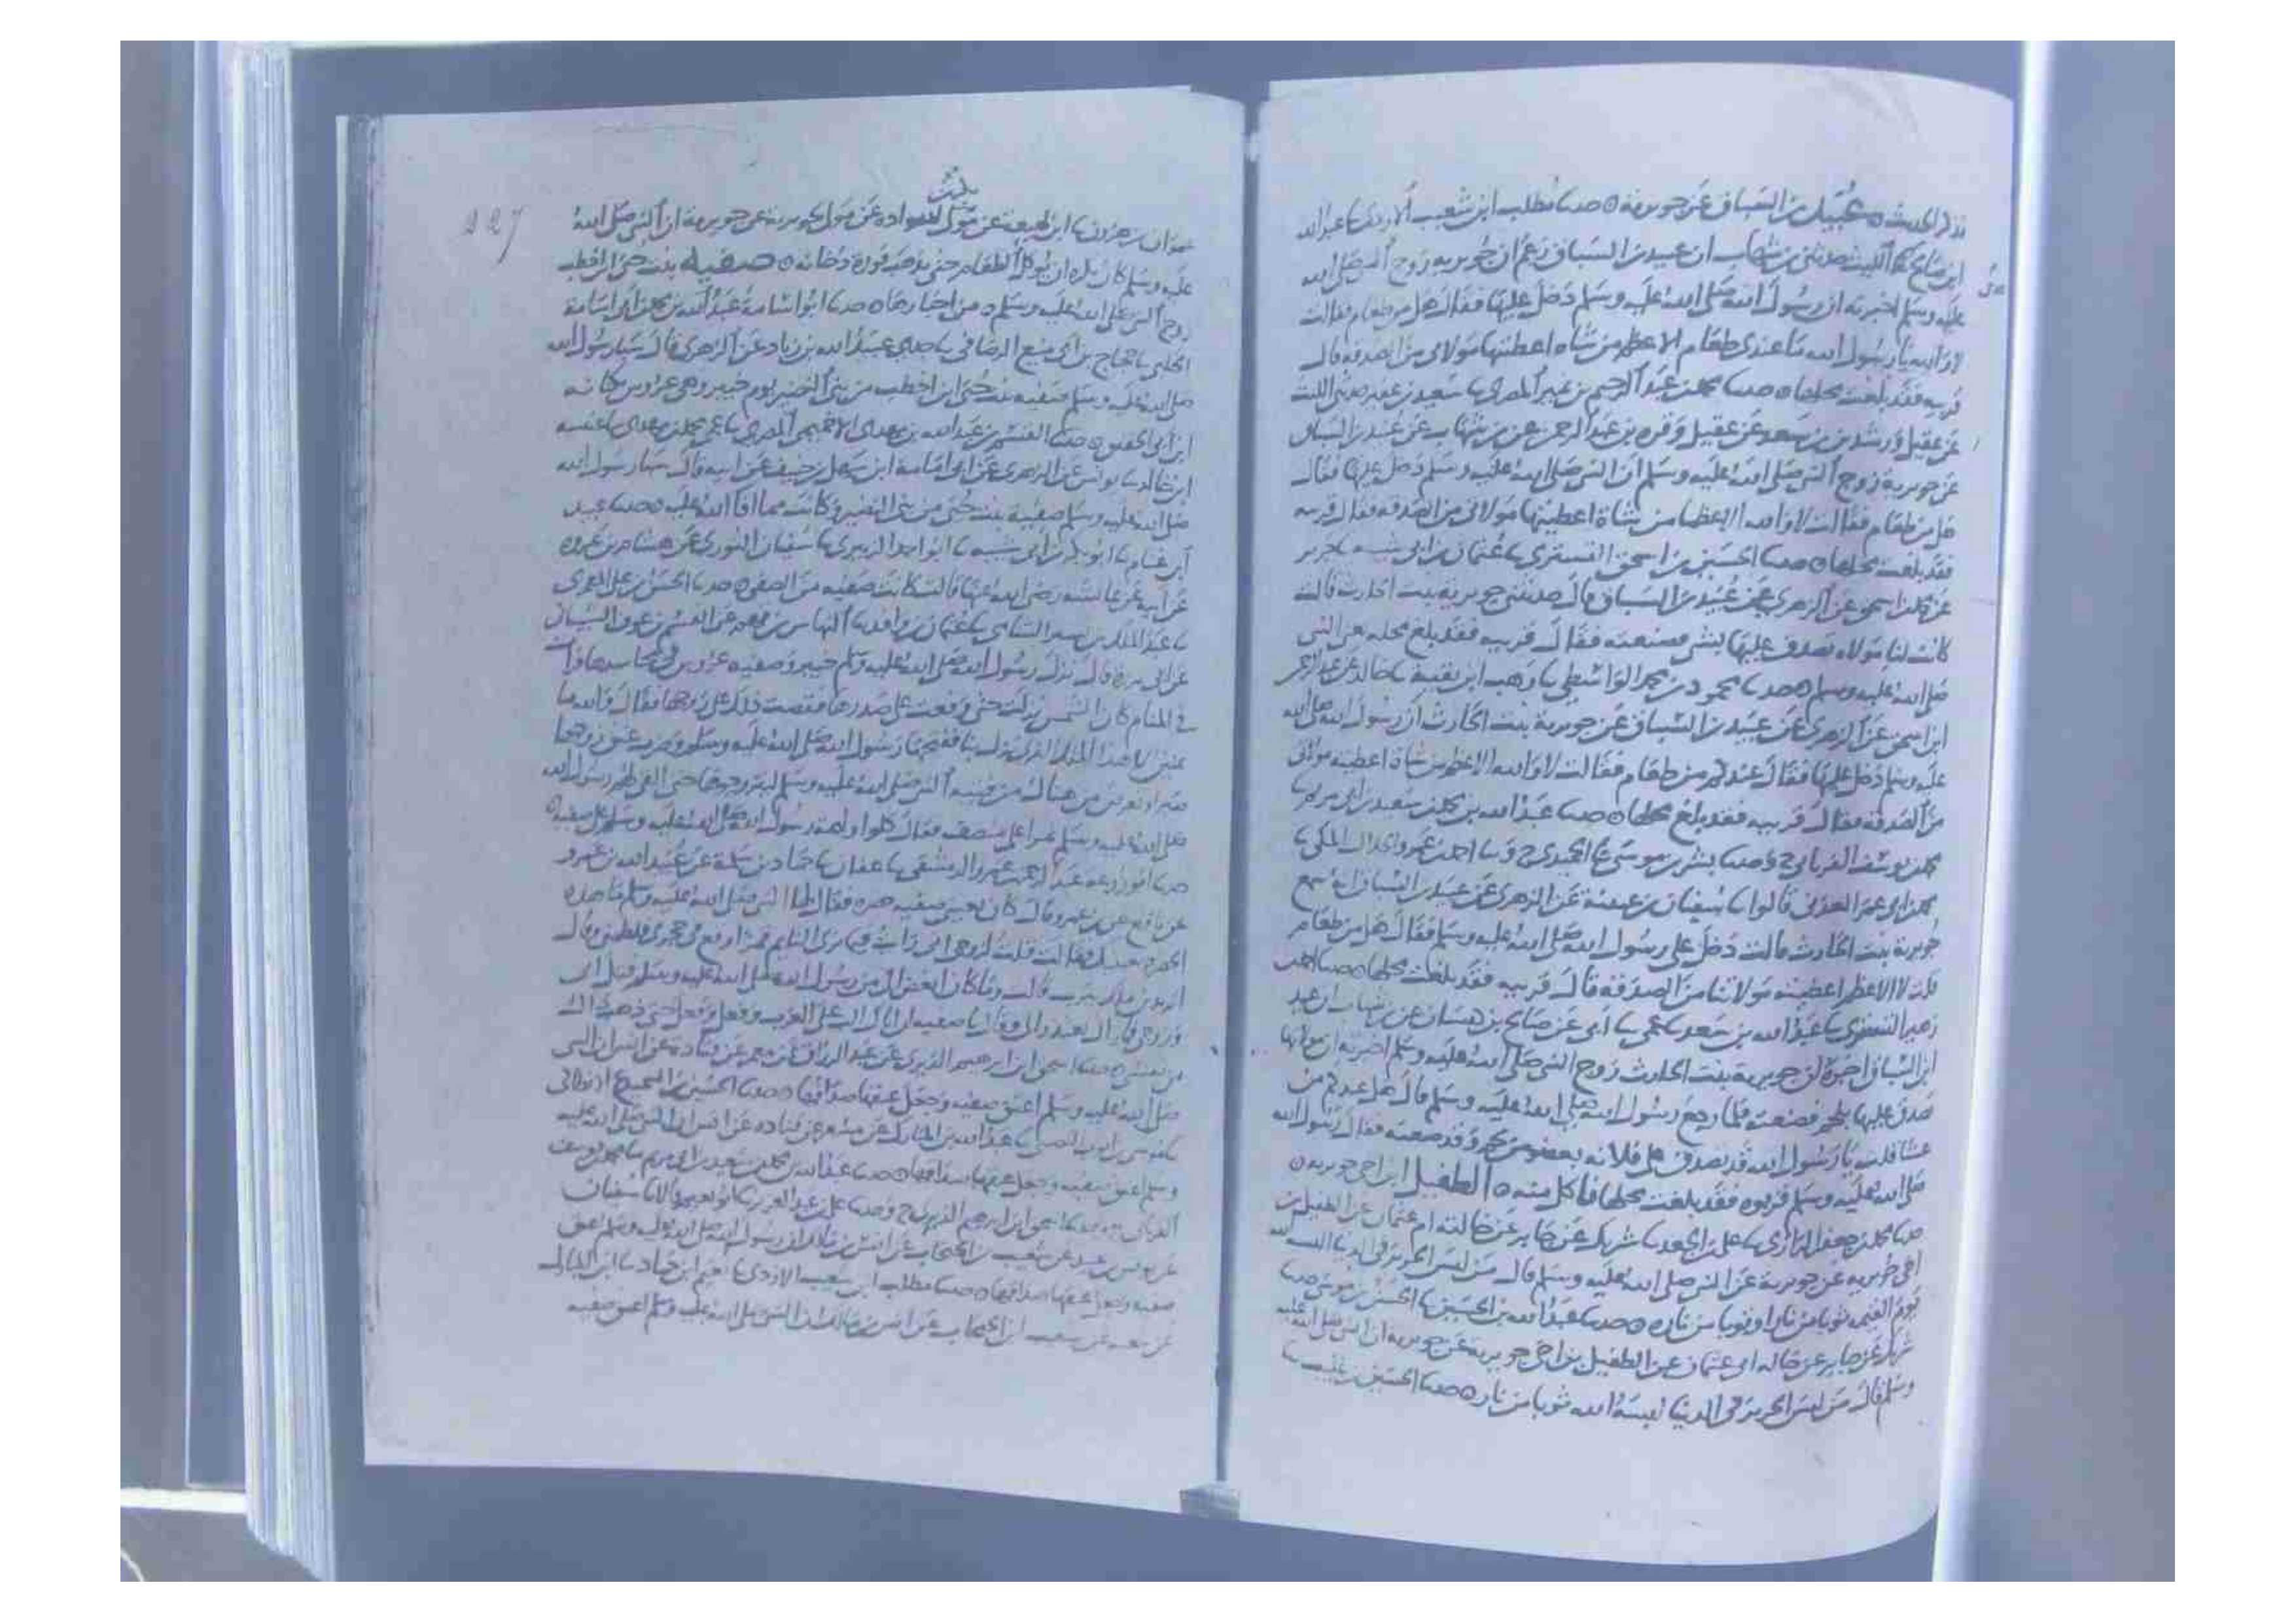 عبيد بن السباق عن جويرية ٥ حدثنا مطلب ابن شعيب الازدي ثنا عبد الله
ابن صالح ثنا الليث حدثني بن شهاب ان عبيد بن السباق زعم ان جويريه زوج النبي صلى الله
عليه وسلم اخبرته ان رسول الله صلى الله عليه وسلم دخل عليها فقال هل من طعام فقالت
لا والله يا رسول الله ما عندي طعام الا عظم من شاه اعطيتها مولاتي من الصدقه قال
قربيه فقد بلغت محلها ٥ حدثنا محمد بن عبد الرحيم بن نمير المصري ثنا سعيد بن عفير حدثني الليث
عن عقيل ورشدين بن سعد عن عقيل وقره بن عبد الرحمن عن بن شهاب عن عبيد بن السباق
عن جويرية زوج النبي صلى الله عليه وسلم ان النبي صلى الله عليه وسلم دخل عليها فقال
هل من طعام فقالت لا والله الا عظما من شاة اعطيتها مولاتي من الصدقه فقال قربيه
فقد بلغت محلها ٥ حدثنا الحسين بن اسحق التستري ثنا عثمان بن ابي شيبه ثنا جرير
عن محمد بن اسحق عن الزهري عن عبيد بن السباق قال حدثتني جويرية بنت الحارث قالت
كانت لنا مولاه تصدق عليها بشي فصنعته فقال قربيه فقد بلغ محله من النبي
صلى الله عليه وسلم ٥ حدثنا محمود بن محمد الواسطي ثنا وهب ابن بقية ثنا خالد عن عبد الرحمن
ابن اسحق عن الزهري عن عبيد بن السباق عن جويرية بنت الحارث ان رسول الله صلى الله
عليه وسلم دخل عليها فقال عندكم من طعام فقالت لا والله الا عظم من شاة اعطيته مولاتي
من الصدقه فقال قربيه فقد بلغ محلها ٥ حدثنا عبد الله بن محمد بن سعيد بن ابي مريم ثنا
محمد بن يوسف الفريابي ح وحدثنا بشر بن موسى ثنا الحميدي ح وثنا احمد بن عمرو الخلال المكي ثنا
محمد بن ابي عمر العدني قالوا ثنا سفيان بن عيينة عن الزهري عن عبيد بن السباق انه سمع
جويرية بنت الحارث قالت دخل علي رسول الله صلى الله عليه وسلم فقال هل من طعام
قلت لا الا عظم اعطيته مولاة لنا من الصدقة قال قربيه فقد بلغت محلها ٥ حدثنا احمد بن
زهير التستري ثنا عبيد الله بن سعد ثنا عمي ثنا ابي عن صالح بن كيسان عن بن شهاب ان عبيد
ابن السباق اخبره ان جويرية بنت الحارث زوج النبي صلى الله عليه وسلم اخبرته ان مولاتها
تصدق عليها بلحم فصنعته فلما رجع رسول الله صلى الله عليه وسلم قال هل عندكم من
عشا قلت يا رسول الله قد تصدق على فلانه بعضو من لحم وقد صنعته فقال رسول الله
صلى الله عليه وسلم قربوه فقد بلغت محلها فاكل منه ٥ الطفيل ابن اخي جويريه ٥
حدثنا محمد بن جعفر الرازي ثنا علي بن الجعد ثنا شريك عن جابر عن خالته ام عثمان عن الطفيل بن
اخي جويريه عن جويرية عن النبي صلى الله عليه وسلم قال من لبس الحرير في الدنيا البسه الله
يوم القيمه ثوبا من نار او ثوبا من ناره ٥ حدثنا عبد الله بن الحسين ثنا الحسن بن موسى
شريك عن جابر عن خاله ابي عثمان عن الطفيل بن اخي جويرية عن جويرية ان النبي صلى الله عليه
وسلم قال من لبس الحرير في الدنيا البسه الله ثوبا من نار ٥ حدثنا الحسين
227
ثنا ابن لهيعة عن عن مولى لجويرية عن جويرية ان النبي صلى الله
عليه وسلم كان يكره ان يوكل الطعام حتى يذهب فورة دخانه ٥ صفيه بنت حيي بن اخطب
زوج النبي صلى الله عليه وسلم ومن اخبارها ٥ حدثنا ابو اسامة عبد الله بن محمد بن ابي اسامة
الحلبي ثنا حجاج بن ابي منيع الرصافي ثنا جدي عبيد الله بن زياد عن الزهري قال سبا رسول الله
صلى الله عليه وسلم صفيه بنت حيي ابن اخطب من بني النضير يوم خيبر وهي عروس بكنانه
ابن ابي الحقيق ٥ حدثنا القسم بن عبد الله بن مهدي الاخميمي المصري ثنا عمي محمد بن مهدي ثنا عنبسه
ابن خالد ثنا يونس عن الزهري عن ابي امامة ابن سهل بن حنيف عن ابيه قال سبا رسول الله
صلى الله عليه وسلم صفية بنت حيي من بني النضير وكانت مما افا الله عليه ٥ حدثنا عبيد
ابن غنام ثنا ابو بكر بن ابي شيبه ثنا ابو احمد الزبيري ثنا سفيان الثوري عن هشام بن عروه
عن ابيه عن عائشه رضي الله عنها قالت كانت صفيه من الصفي ٥ حدثنا الحسن بن علي المعمري
عن ابي برزه قال نزل رسول الله صلى الله عليه وسلم خيبر وصفيه عروس
في المنام كان الشمس نزلت حتى وقعت على صدرها فقصت ذلك على زوجها فقال والله ما
تمنين الا هذا الملك الذي نزل بنا ففتحها رسول الله صلى الله عليه وسلم وضرب عنق زوجها
صلى الله عليه وسلم تمرا على سقف فقال كلوا وليمة رسول الله صلى الله عليه وسلم على صفية ٥
حدثنا ابو زرعه عبد الرحمن بن عمرو الدمشقي ثنا عفان ثنا حماد بن سلمة عن عبيد الله بن عمرو
عن نافع عن بن عمر قال كان بعيني صفيه خضره فقال لها النبي صلى الله عليه وسلم ما هذه
الخضره بعينيك فقالت قلت لزوجي اني رايت فيما يرى النايم قمرا وقع في حجري فلطمني وقال
اتريدين ملك يثرب قالت وما كان ابغض الي من رسول الله صلى الله عليه وسلم قتل ابي
وزوجي فما زال يعتذر الي وقال يا صفيه ان اباك الب علي العرب وفعل وفعل حتى ذهب ذاك
من نفسي ٥ حدثنا اسحق ابن ابرهيم الدبري عن عبد الرزاق عن معمر عن قتادة عن انس ان النبي
صلى الله عليه وسلم اعتق صفيه وجعل عتقها صداقها ٥ حدثنا الحسين بن السميدع الانطاكي
ثنا موسى بن ايوب النصيبي ثنا عبد الله بن المبارك عن معمر عن قتاده عن انس ان النبي صلى الله عليه
وسلم اعتق صفيه وجعل عتقها صداقها ٥ حدثنا عبد الله بن محمد بن سعيد بن ابي مريم ثنا محمد بن يوسف
ح وحدثنا علي بن عبد العزيز ثنا ابو نعيم قالا ثنا سفيان
عن يونس بن عبيد عن شعيب بن الحبحاب عن انس بن مالك ان رسول الله صلى الله عليه وسلم اعتق
صفيه وجعل عتقها صداقها ٥ حدثنا مطلب ابن شعيب الازدي ثنا نعيم ابن حماد ثنا ابن المبارك
عن شعيب ابن الحبحاب عن انس بن مالك ان النبي صلى الله عليه وسلم اعتق صفيه